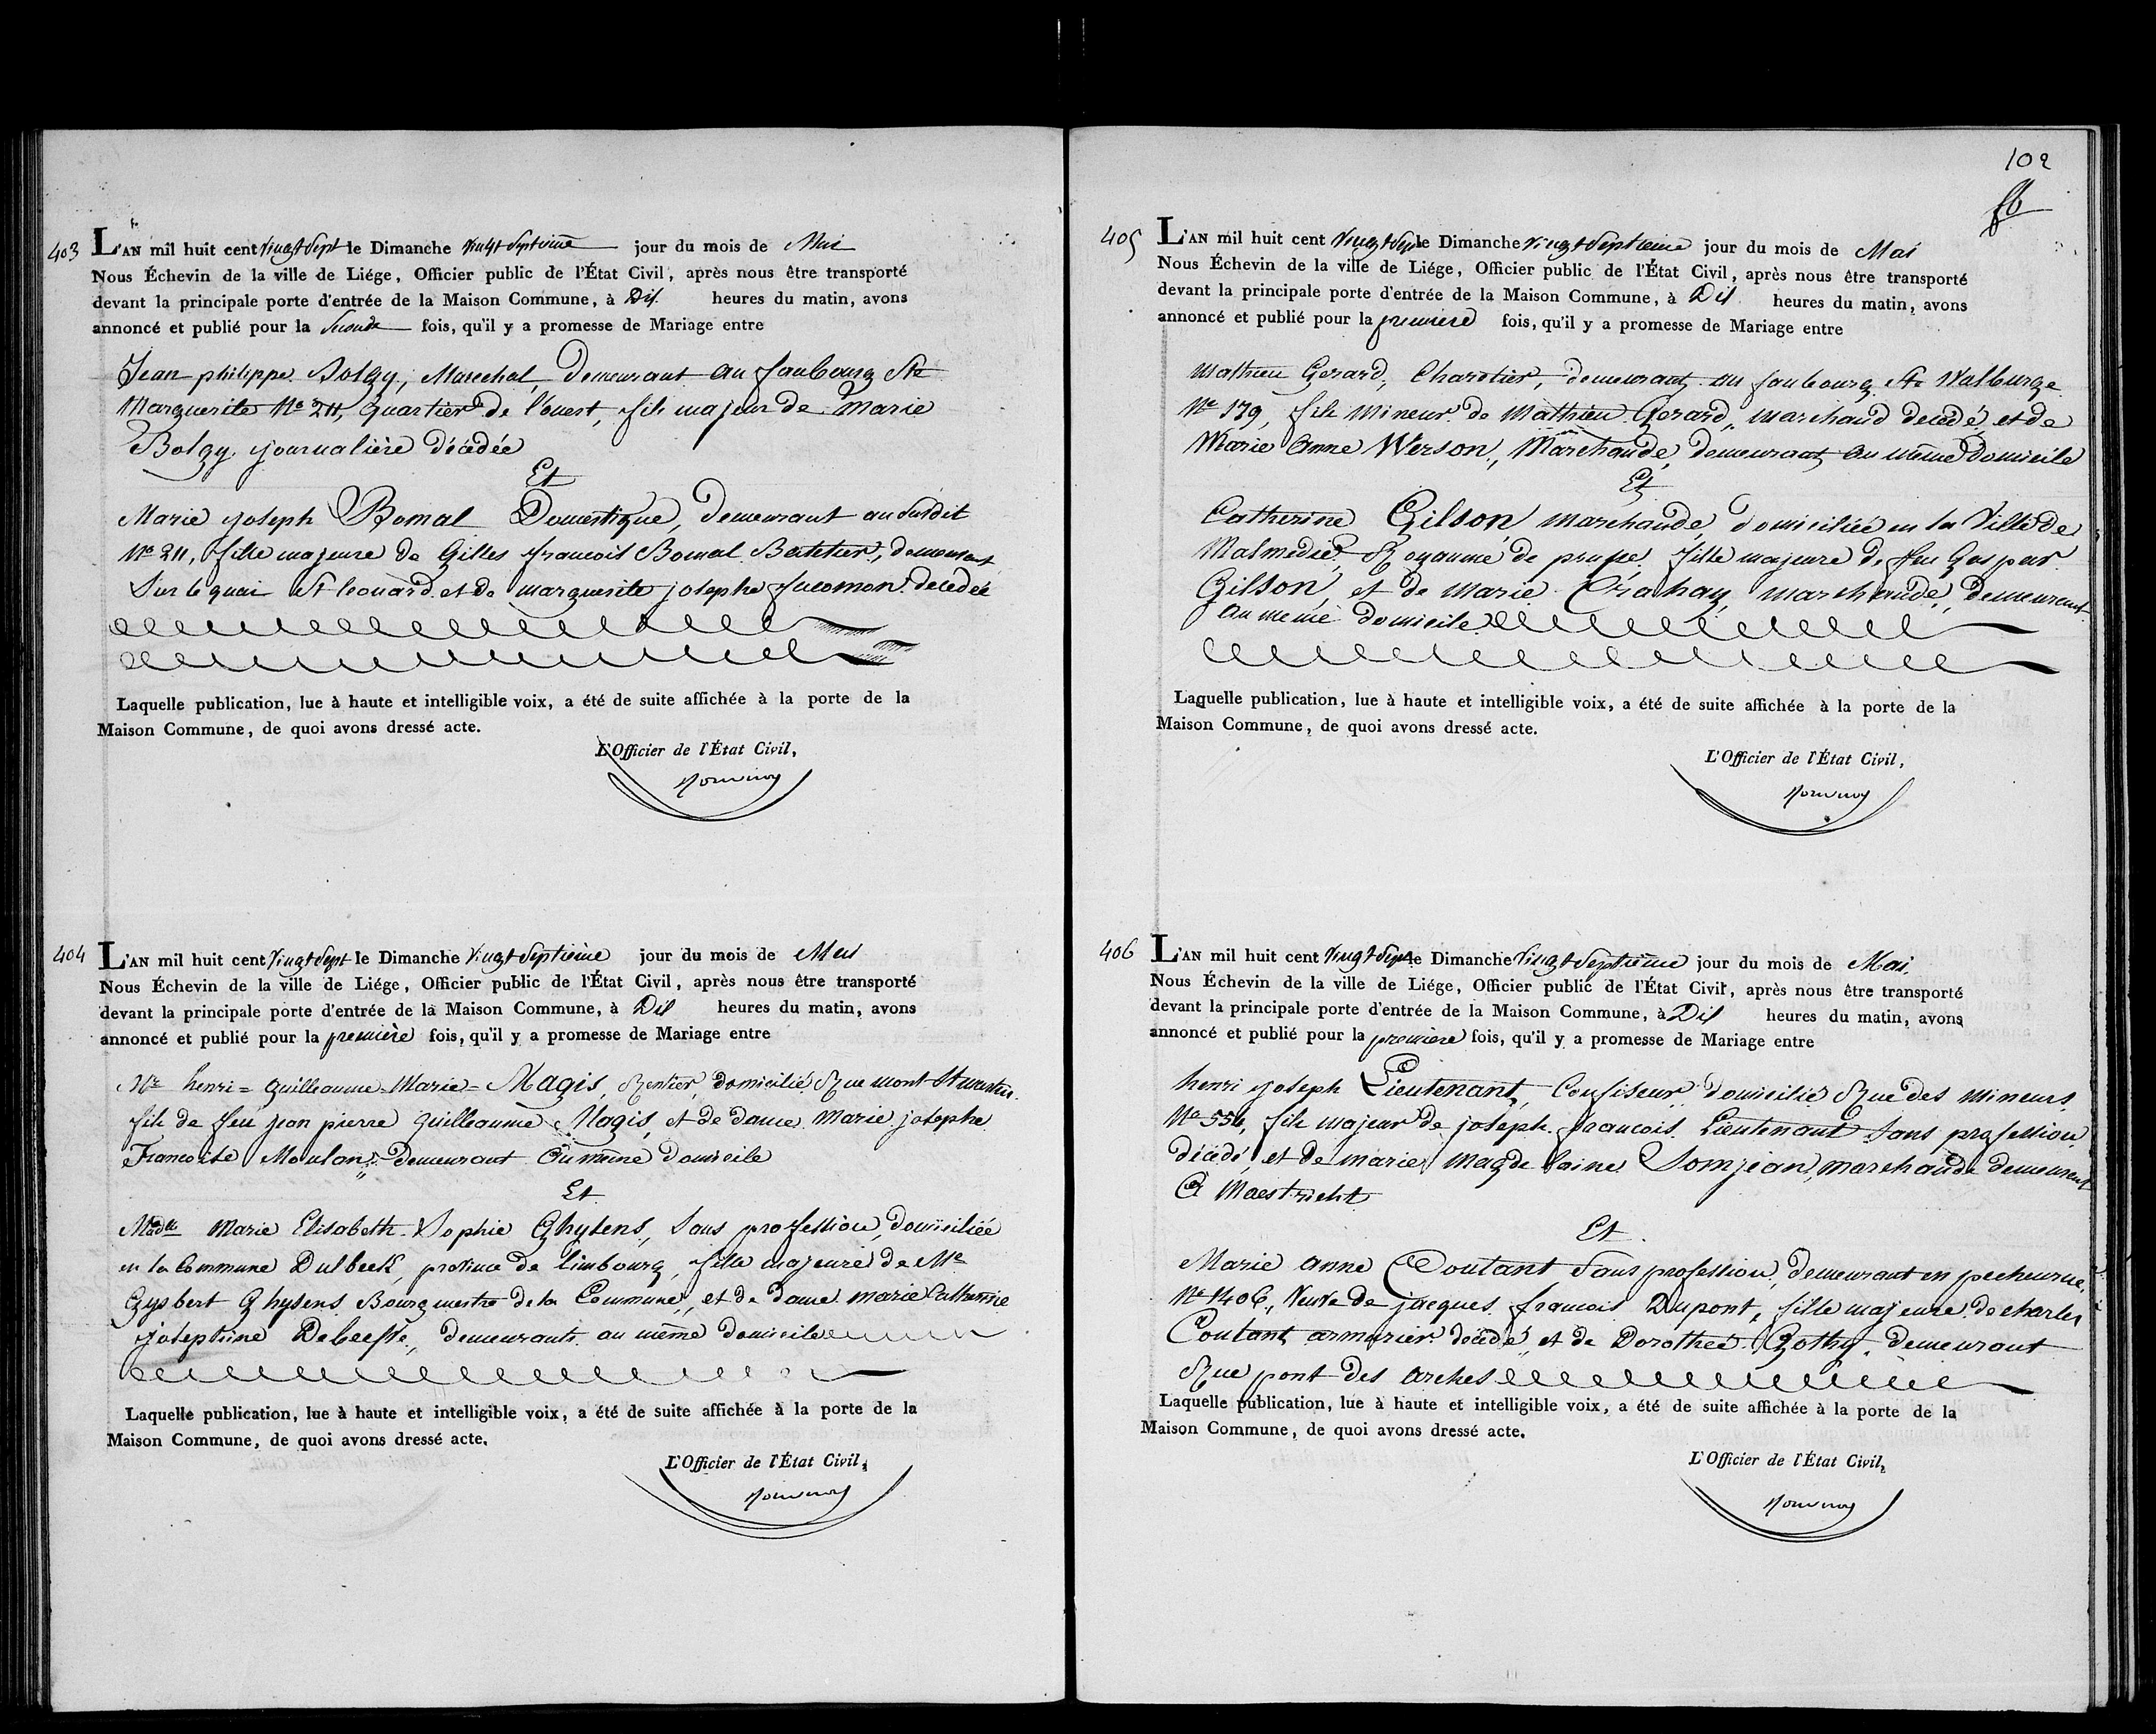 403 L'AN mil huit cent Vingt Sept le Dimanche Vingt Septieme jour du mois de Mai
Nous Échevin de la ville de Liége, Officier public de l'État Civil, après nous être transporté
devant la principale porte d'entrée de la Maison Commune, à Dix heures du matin, avons
annoncé et publié pour la Seconde fois, qu'il y a promesse de Mariage entre
Jean philippe Bolgy, Marechal, Demeurant au faubourg Ste
Marguerite No 211, quartier de l'ouest, fils majeur de Marie
Bolgy journalière décédée
Et
Marie joseph Bomal Domestique, Demeurant au Susdit
No 211, fille majeure de Gilles francois Bomal Batelier, demeurant
Sur le quai St leonard et de marguerite josephe decedée
Laquelle publication, lue à haute et intelligible voix, a été de suite affichée à la porte de la
Maison Commune, de quoi avons dressé acte.
L'Officier de l'État Civil,
404 L'AN mil huit cent Vingt Sept le Dimanche Vingt Septieme jour du mois de Mai
Nous Échevin de la ville de Liége, Officier public de l'État Civil, après nous être transporté
devant la principale porte d'entrée de la Maison Commune, à Dix heures du matin, avons
annoncé et publié pour la première fois, qu'il y a promesse de Mariage entre
Mr henri = guilleaume = Marie = Magis, Rentier, domicilié Rue mont St martin
fils de feu jean pierre guilleaume Magis, et de dame marie josephe
Francoise Moulan, Demeurant au même domicile
Et
Madlle Marie Elisabeth Sophie Ghysens, Sans profession, domiciliée
en la Commune Dulbeek, province de limbourg, fille majeure de Mr
Gysbert Ghysens Bourgmestre de la Commune, et de dame marie Catherine
josephine Debeefe, demeurants au même domicile
Laquelle publication, lue à haute et intelligible voix, a été de suite affichée à la porte de la
Maison Commune, de quoi avons dressé acte.
L'Officier de l'État Civil,
102
405 L'AN mil huit cent Vingt Sept le Dimanche Vingt Septieme jour du mois de Mai
Nous Échevin de la ville de Liége, Officier public de l'État Civil, après nous être transporté
devant la principale porte d'entrée de la Maison Commune, à Dix heures du matin, avons
annoncé et publié pour la premiere fois, qu'il y a promesse de Mariage entre
Mathieu Gerard, Charetier, demeurant au faubourg Ste Walburge
No 179, fils Mineur de Mathieu Gerard, marchand decedé et de
Marie Anne Werson, Marchande, Demeurant au même Domicile
Et
Catherine Gilson, marchande, domiciliée en la Ville de
Malmedie, Royaume de prusse, fille majeure de feu Gaspar
Gilson, et de Marie Crahay, marchande, demeurant
au meme domicile
Laquelle publication, lue à haute et intelligible voix, a été de suite affichée à la porte de la
Maison Commune, de quoi avons dressé acte.
L'Officier de l'État Civil,
406 L'AN mil huit cent Vingt Sept le Dimanche Vingt Septieme jour du mois de Mai
Nous Échevin de la ville de Liége, Officier public de l'État Civil, après nous être transporté
devant la principale porte d'entrée de la Maison Commune, à Dix heures du matin, avons
annoncé et publié pour la premiere fois, qu'il y a promesse de Mariage entre
henri joseph Lieutenant, Confiseur, domicilié Rue des Mineurs
No 554, fils majeur de joseph francois Lieutenant Sans profession
décédé, et de marie magdelaine Somjean, marchande demeurent
A Maestricht
Et
Marie anne Coutant Sans profession, demeurant en pecheurue,
No 1406, Veuve de jacques francois Dupont, fille majeure de charles
Coutant armurier décédé, et de Dorothée Gothy, demeurant
Rue pont des arches
Laquelle publication, lue à haute et intelligible voix, a été de suite affichée à la porte de la
Maison Commune, de quoi avons dressé acte.
L'Officier de l'État Civil,